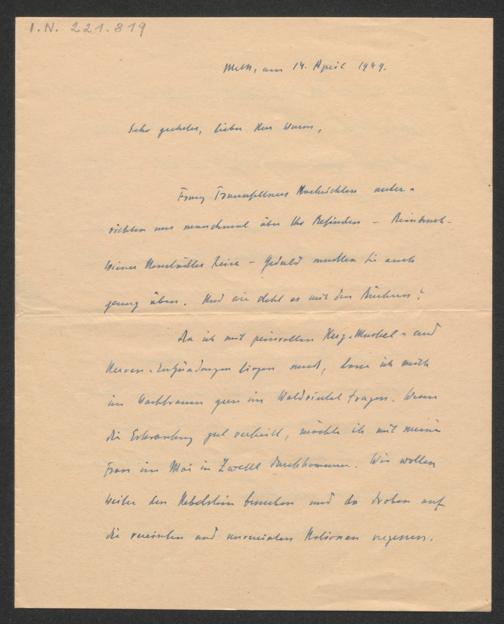 I.N. 221.819
Melk, am 14. April 1949.
Sehr geehrter, lieber Herr Wurm,
Franz Traunfellners Nachrichten unter-
richten uns manchmal über Ihr Befinden – Beinbruch-
Wiener Neustädter Reise – Geduld mußten Sie auch
genug üben. Und wie steht es mit den Büchern?
Da ich mit peinvollen Herz-Muskel- und
Nerven-Entzündungen liegen muß, lasse ich mich
im Wachtraum gern ins Waldviertel tragen. Wenn
die Erkrankung gut verheilt, möchte ich mit meiner
Frau im Mai in Zwettl durchkommen. Wir wollen
weiter den Nebelstein besuchen und da droben auf
die vereinten und unvereinten Nationen vergessen.